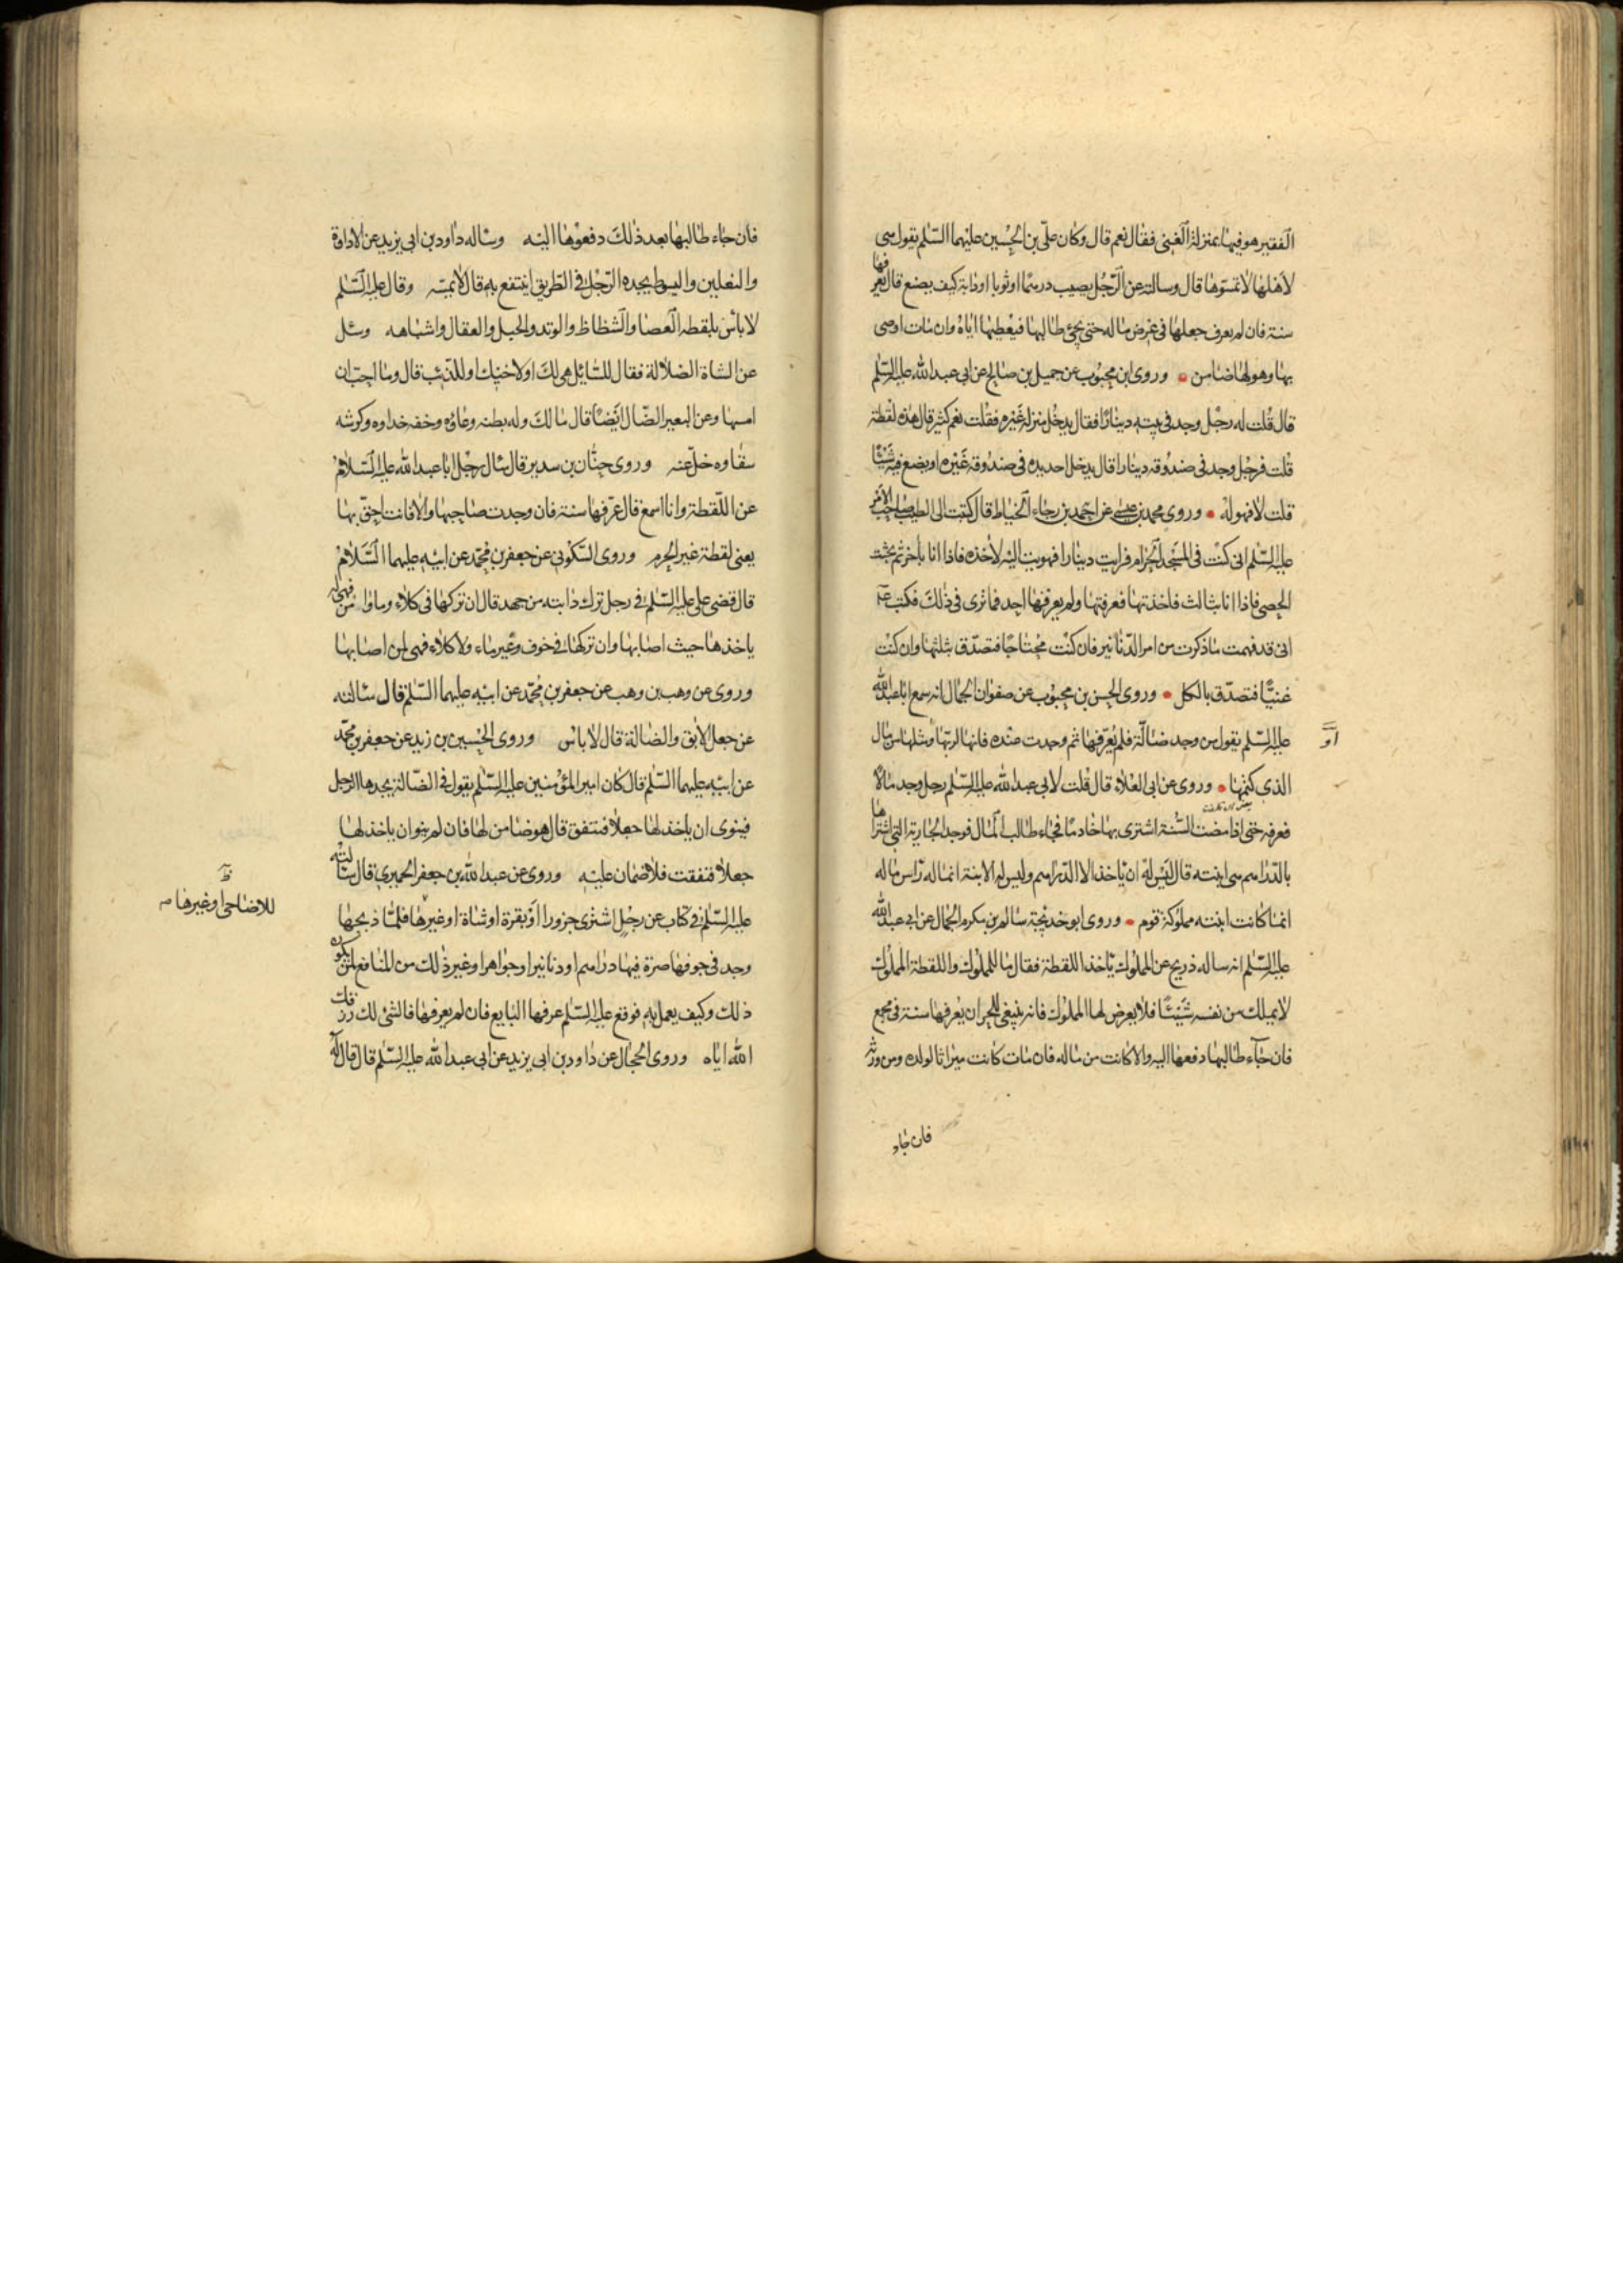 الفقير هو فيها بمنزلة الغنى فقال نعم قال وكان على بن الحسين عليهما السلم يقول هى
لاهلها لا تمسوها قال وسالته عن الرجل يصيب درهما او ثوبا او دابة كيف يصنع قال يعرفها
سنة فان لم يعرف جعلها فى عرض ماله حتى يجئ طالبها فيعطيها اياه وان مات اوصى
بها وهو لها ضامن وروى ابن محبوب عن جميل بن صالح عن ابى عبد الله عليه السلم
قال قلت له رجل وجد فى بيته دينارا فقال يدخل منزله غيره فقلت نعم كثير قال هذه لقطة
قلت فرجل وجد فى صندوقه دينارا قال يدخل احد يده فى صندوقه غيره او يضع فيه شيئا
قلت لا فهو له وروى محمد بن عيسى عن احمد بن رجاء الخياط قال كتبت الى الطيب صاحب الامر
عليه السلم انى كنت فى المسجد الحرام فرايت دينارا فهويت اليه لاخذه فاذا انا باخر ثم بحثت
الحصى فاذا انا بثالث فاخذتها فعرفتها ولم يعرفها احد فما ترى فى ذلك فكتب ع
انى قد فهمت ما ذكرت من امر الدنانير فان كنت محتاجا فتصدق بثلثها وان كنت
غنيا فتصدق بالكل وروى الحسن بن محبوب عن صفوان الجمال انه سمع ابا عبد الله
عليه السلم يقول من وجد ضالة فلم يعرفها ثم وجدت عنده فانها لربها ومثلها من مال
او
الذى كتمها وروى عن ابى العلاء قال قلت لابى عبد الله عليه السلم رجل وجد مالا
فعرفه حتى اذا مضت السنة اشترى بها خادما فجاء طالب المال فوجد الجارية التى اشتراها
بالدراهم هى ابنته قال ليس له ان ياخذ الا الدراهم وليس له الابنة انما له راس ماله
انما كانت ابنته مملوكة قوم وروى ابو خديجة سالم بن مكرم الجمال عن ابى عبد الله
عليه السلم انه ساله ذريح عن المملوك ياخذ اللقطة فقال ما للمملوك واللقطة المملوك
لا يملك من نفسه شيئا فلا يعرض لها المملوك فانه ينبغى للحر ان يعرفها سنة فى مجمع
فان جاء طالبها دفعها اليه والا كانت من ماله فان مات كانت ميراثا لولده ومن ورثه
فان جاء
فان جاء طالبها بعد ذلك دفعوها اليه وساله داود بن ابى يزيد عن الاداوة
والنعلين والسوط يجده الرجل فى الطريق اينتفع به قال لا يمسه وقال عليه السلم
لا باس بلقطه العصا والشظاظ والوتد والحبل والعقال واشباهه وسئل
عن الشاة الضلالة فقال للسائل هى لك او لاخيك او للذئب قال وما احب ان
امسها وعن البعير الضال ايضا قال ما لك وله بطنه وعاؤه وخفه حذاوه وكرشه
سقاوه خل عنه وروى حنان بن سدير قال سال رجل ابا عبد الله عليه السلام
عن اللقطة وانا اسمع قال عرفها سنة فان وجدت صاحبها والا فانت احق بها
يعنى لقطة غير الحرم وروى السكونى عن جعفر بن محمد عن ابيه عليهما السلام
قال قضى على عليه السلم فى رجل ترك دابته من جهد قال ان تركها فى كلاء وماء فهى لمن
ياخذها حيث اصابها وان تركها فى خوف وغير ماء ولا كلاء فهى لمن اصابها
وروى عن وهب بن وهب عن جعفر بن محمد عن ابيه عليهما السلم قال سالته
عن جعل الابق والضالة قال لا باس وروى الحسين بن زيد عن جعفر بن محمد
عن ابيه عليهما السلم قال كان امير المؤمنين عليه السلم يقول فى الضالة يجدها الرجل
فينوى ان ياخذ لها جعلا فتنفق قال هو ضامن لها فان لم ينو ان ياخذ لها
جعلا فنفقت فلا ضمان عليه وروى عن عبد الله بن جعفر الحميرى قال سالته
عليه السلم فى كتاب عن رجل اشترى جزورا او بقرة او شاة او غيرها فلما ذبحها
للاضاحى او غيرها
وجد فى جوفها صرة فيها دراهم او دنانير او جواهر او غير ذلك من المنافع لمن يكون
ذلك وكيف يعمل به فوقع عليه السلم عرفها البايع فان لم يعرفها فالشئ لك رزقك
الله اياه وروى الحجال عن داود بن ابى يزيد عن ابى عبد الله عليه السلم قال قال له